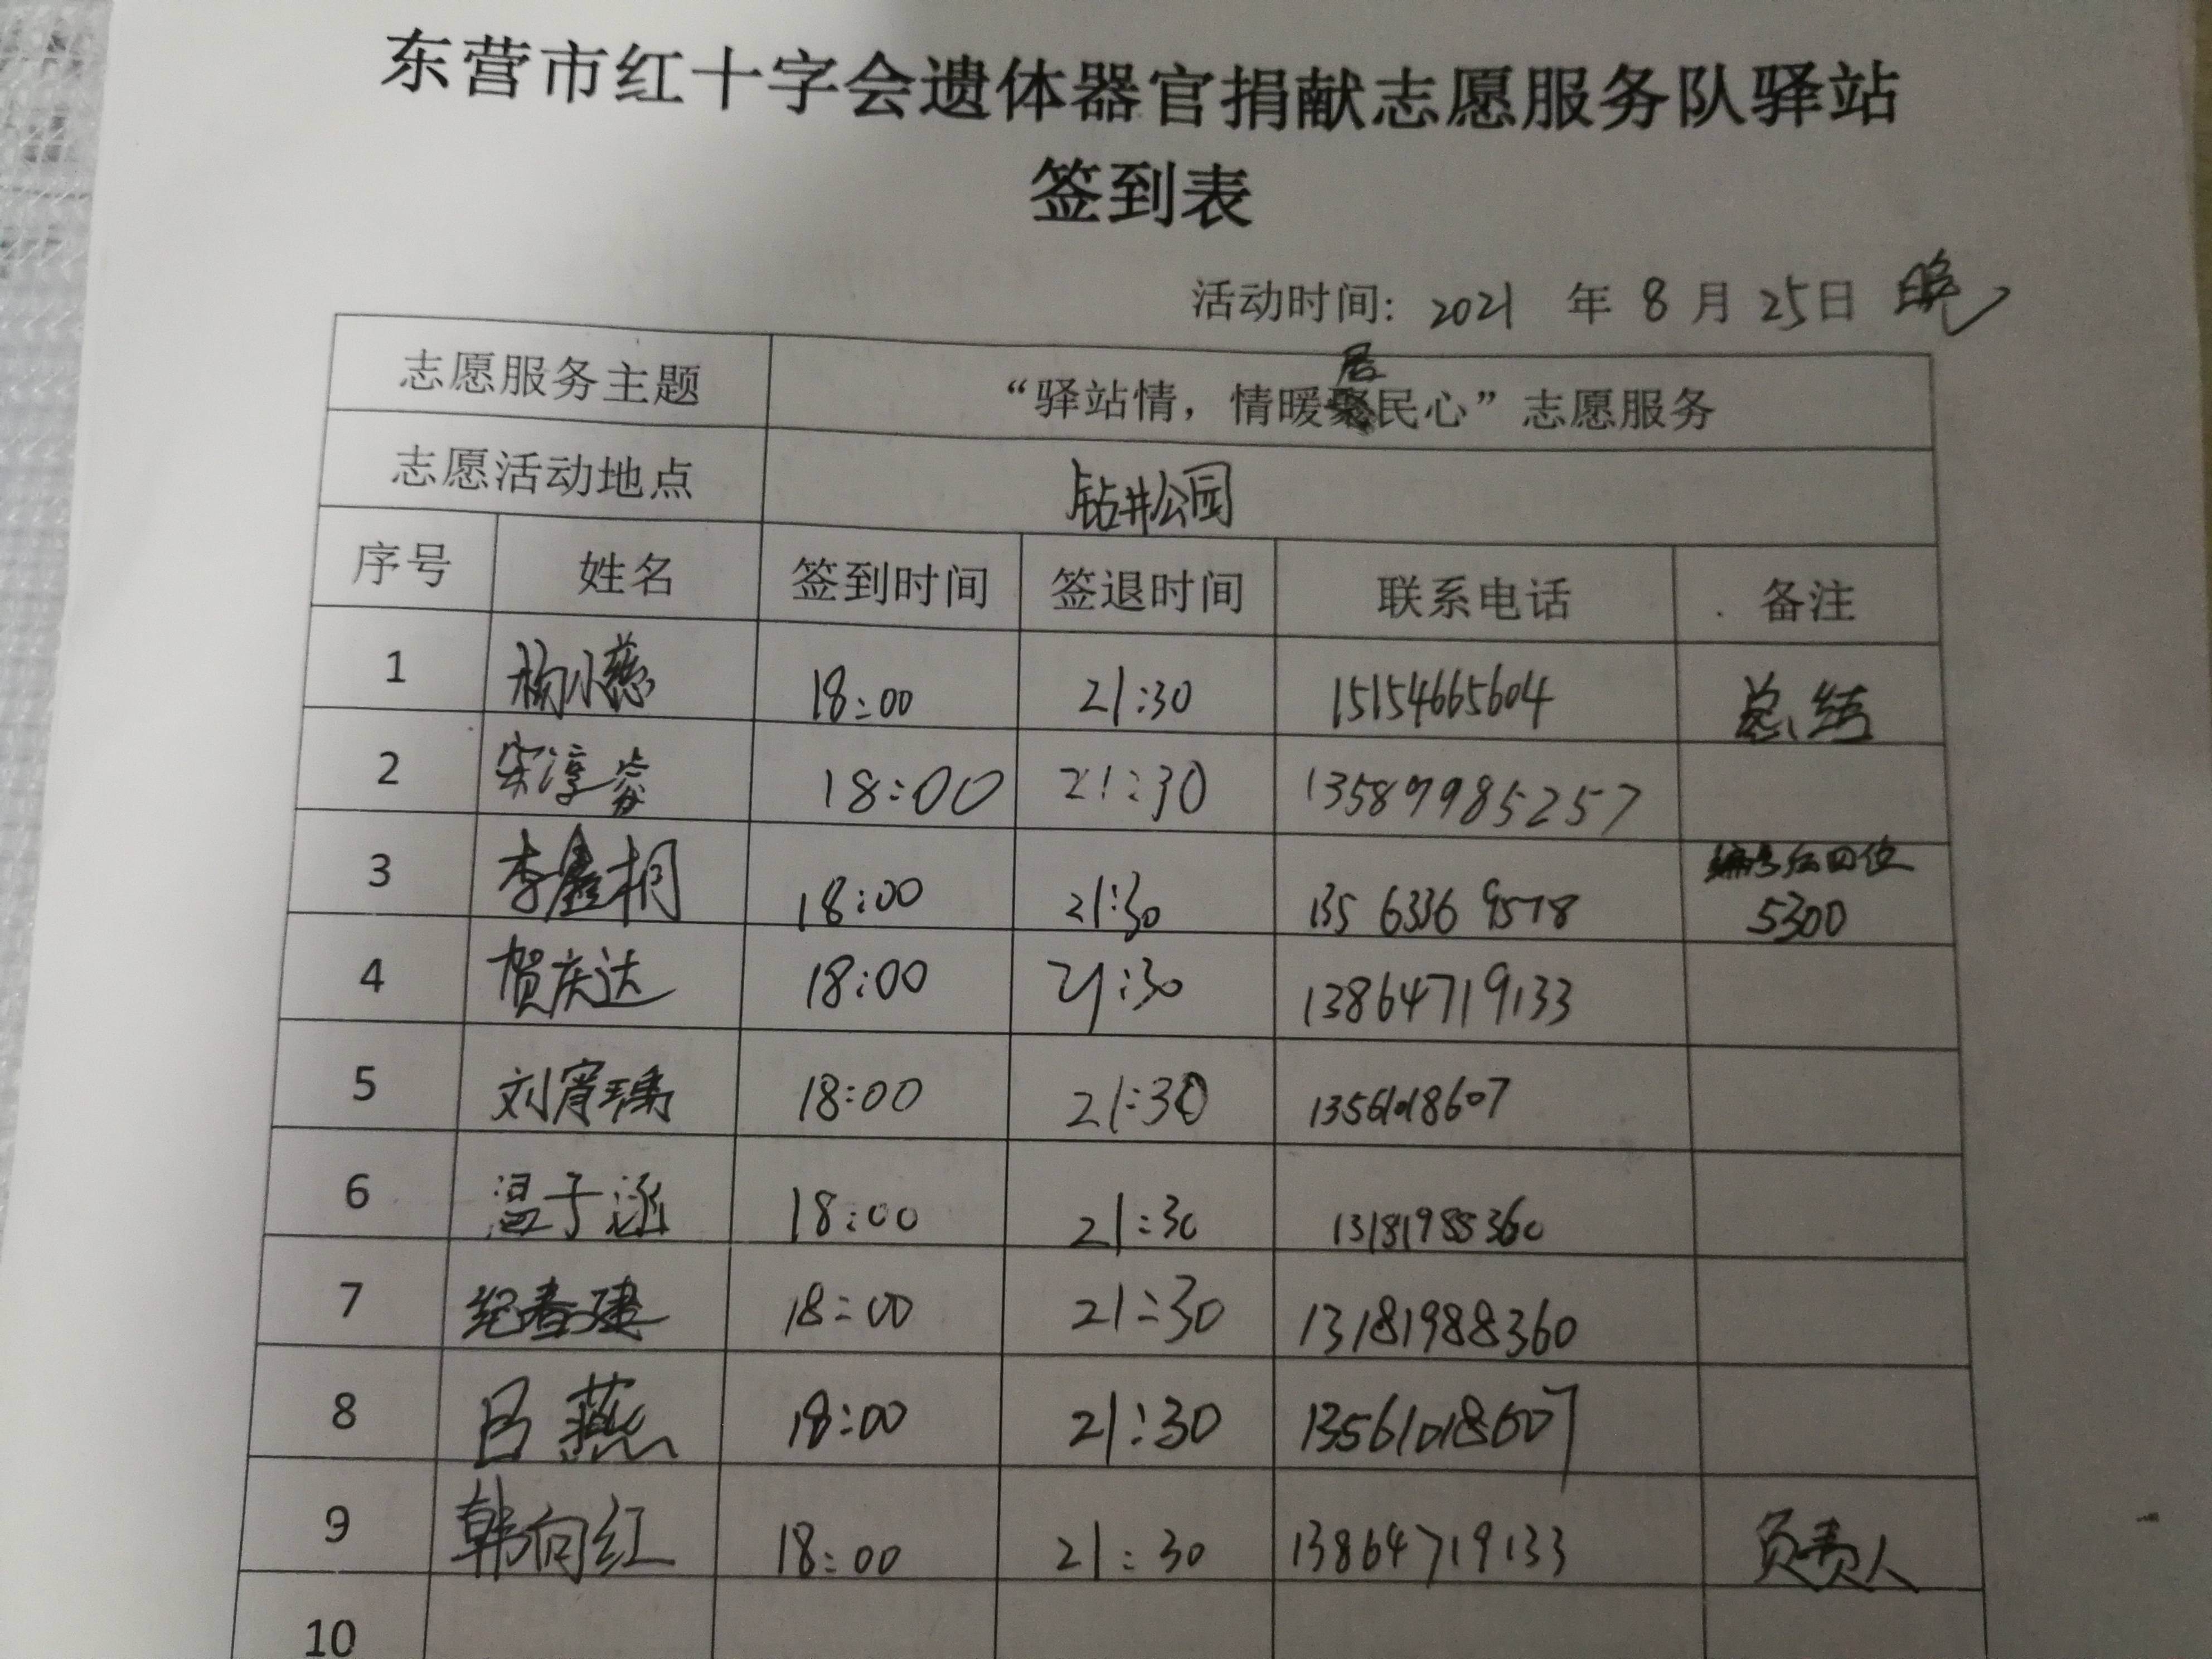 东营市红十字会遗体器官捐献志愿服务队驿站
签到表
活动时间: 2021 年 8 月 25日 晚
志愿服务主题 “驿站情，情暖居民心”志愿服务
志愿活动地点 钻井公园
序号 姓名 签到时间 签退时间 联系电话 备注
1 杨小慈 18:00 21:30 15154665604 总结
2 宋淳 18:00 21:30 13589985257
3 李鑫桐 18:00 21:30 135 6336 9578 编号后四位 5300
4 贺庆达 18:00 21:30 13864719133
5 刘宵瑀 18:00 21:30 13561018607
6 温子涵 18:00 21:30 13181988360
7 纪春建 18:00 21:30 13181988360
8 吕燕 18:00 21:30 13561018607
9 韩向红 18:00 21:30 13864719133 负责人
10